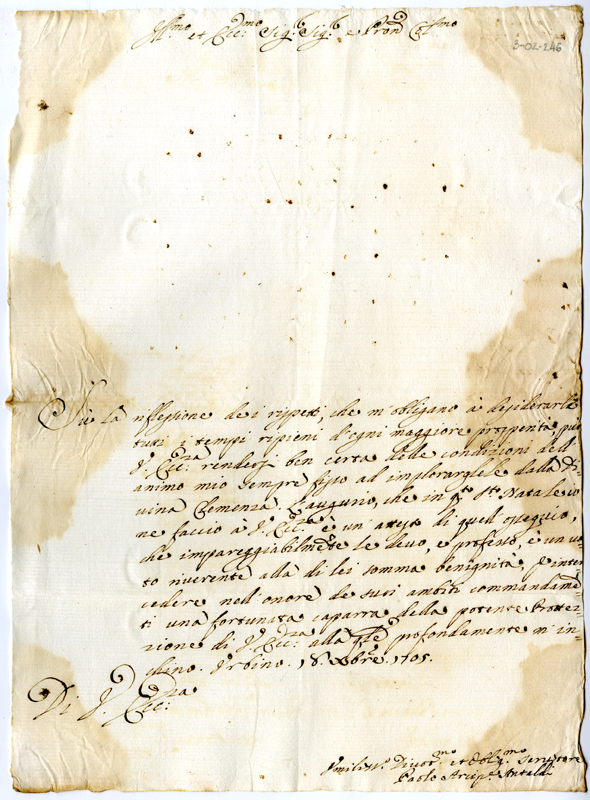 Ill.mo et Ecc.mo Sig.r Sig.r e Pron Col.mo
3-02-246
Sù la riflessione dei rispetti, che m'obligano à desiderarle
tutti i tempi ripieni d'ogni maggiore prosperità, può
V. Ecc.za rendersi ben certa delle condizioni dell'
animo mio sempre fisso ad implorargliele dalla Di-
vina Clemenza. L'augurio, che in q.to S.to Natale io
ne faccio à V. Ecc.za è un' attesto di quell' ossequio,
che impareggiabilmte le devo, e professo, è un vo-
to riverente alla di lei somma benignità, p inter-
cedere nell' onore de suoi ambiti commandamē-
ti una fortunata caparra della potente Protte-
zione di V. Ecc.za alla qle pofondamente m'in-
chino. Urbino. 18. Xbre. 1705.
Di V. Ecc.za
Umiliss.o Divot.mo et Oblig.mo Servitore
Paolo Arcip.e Antaldi